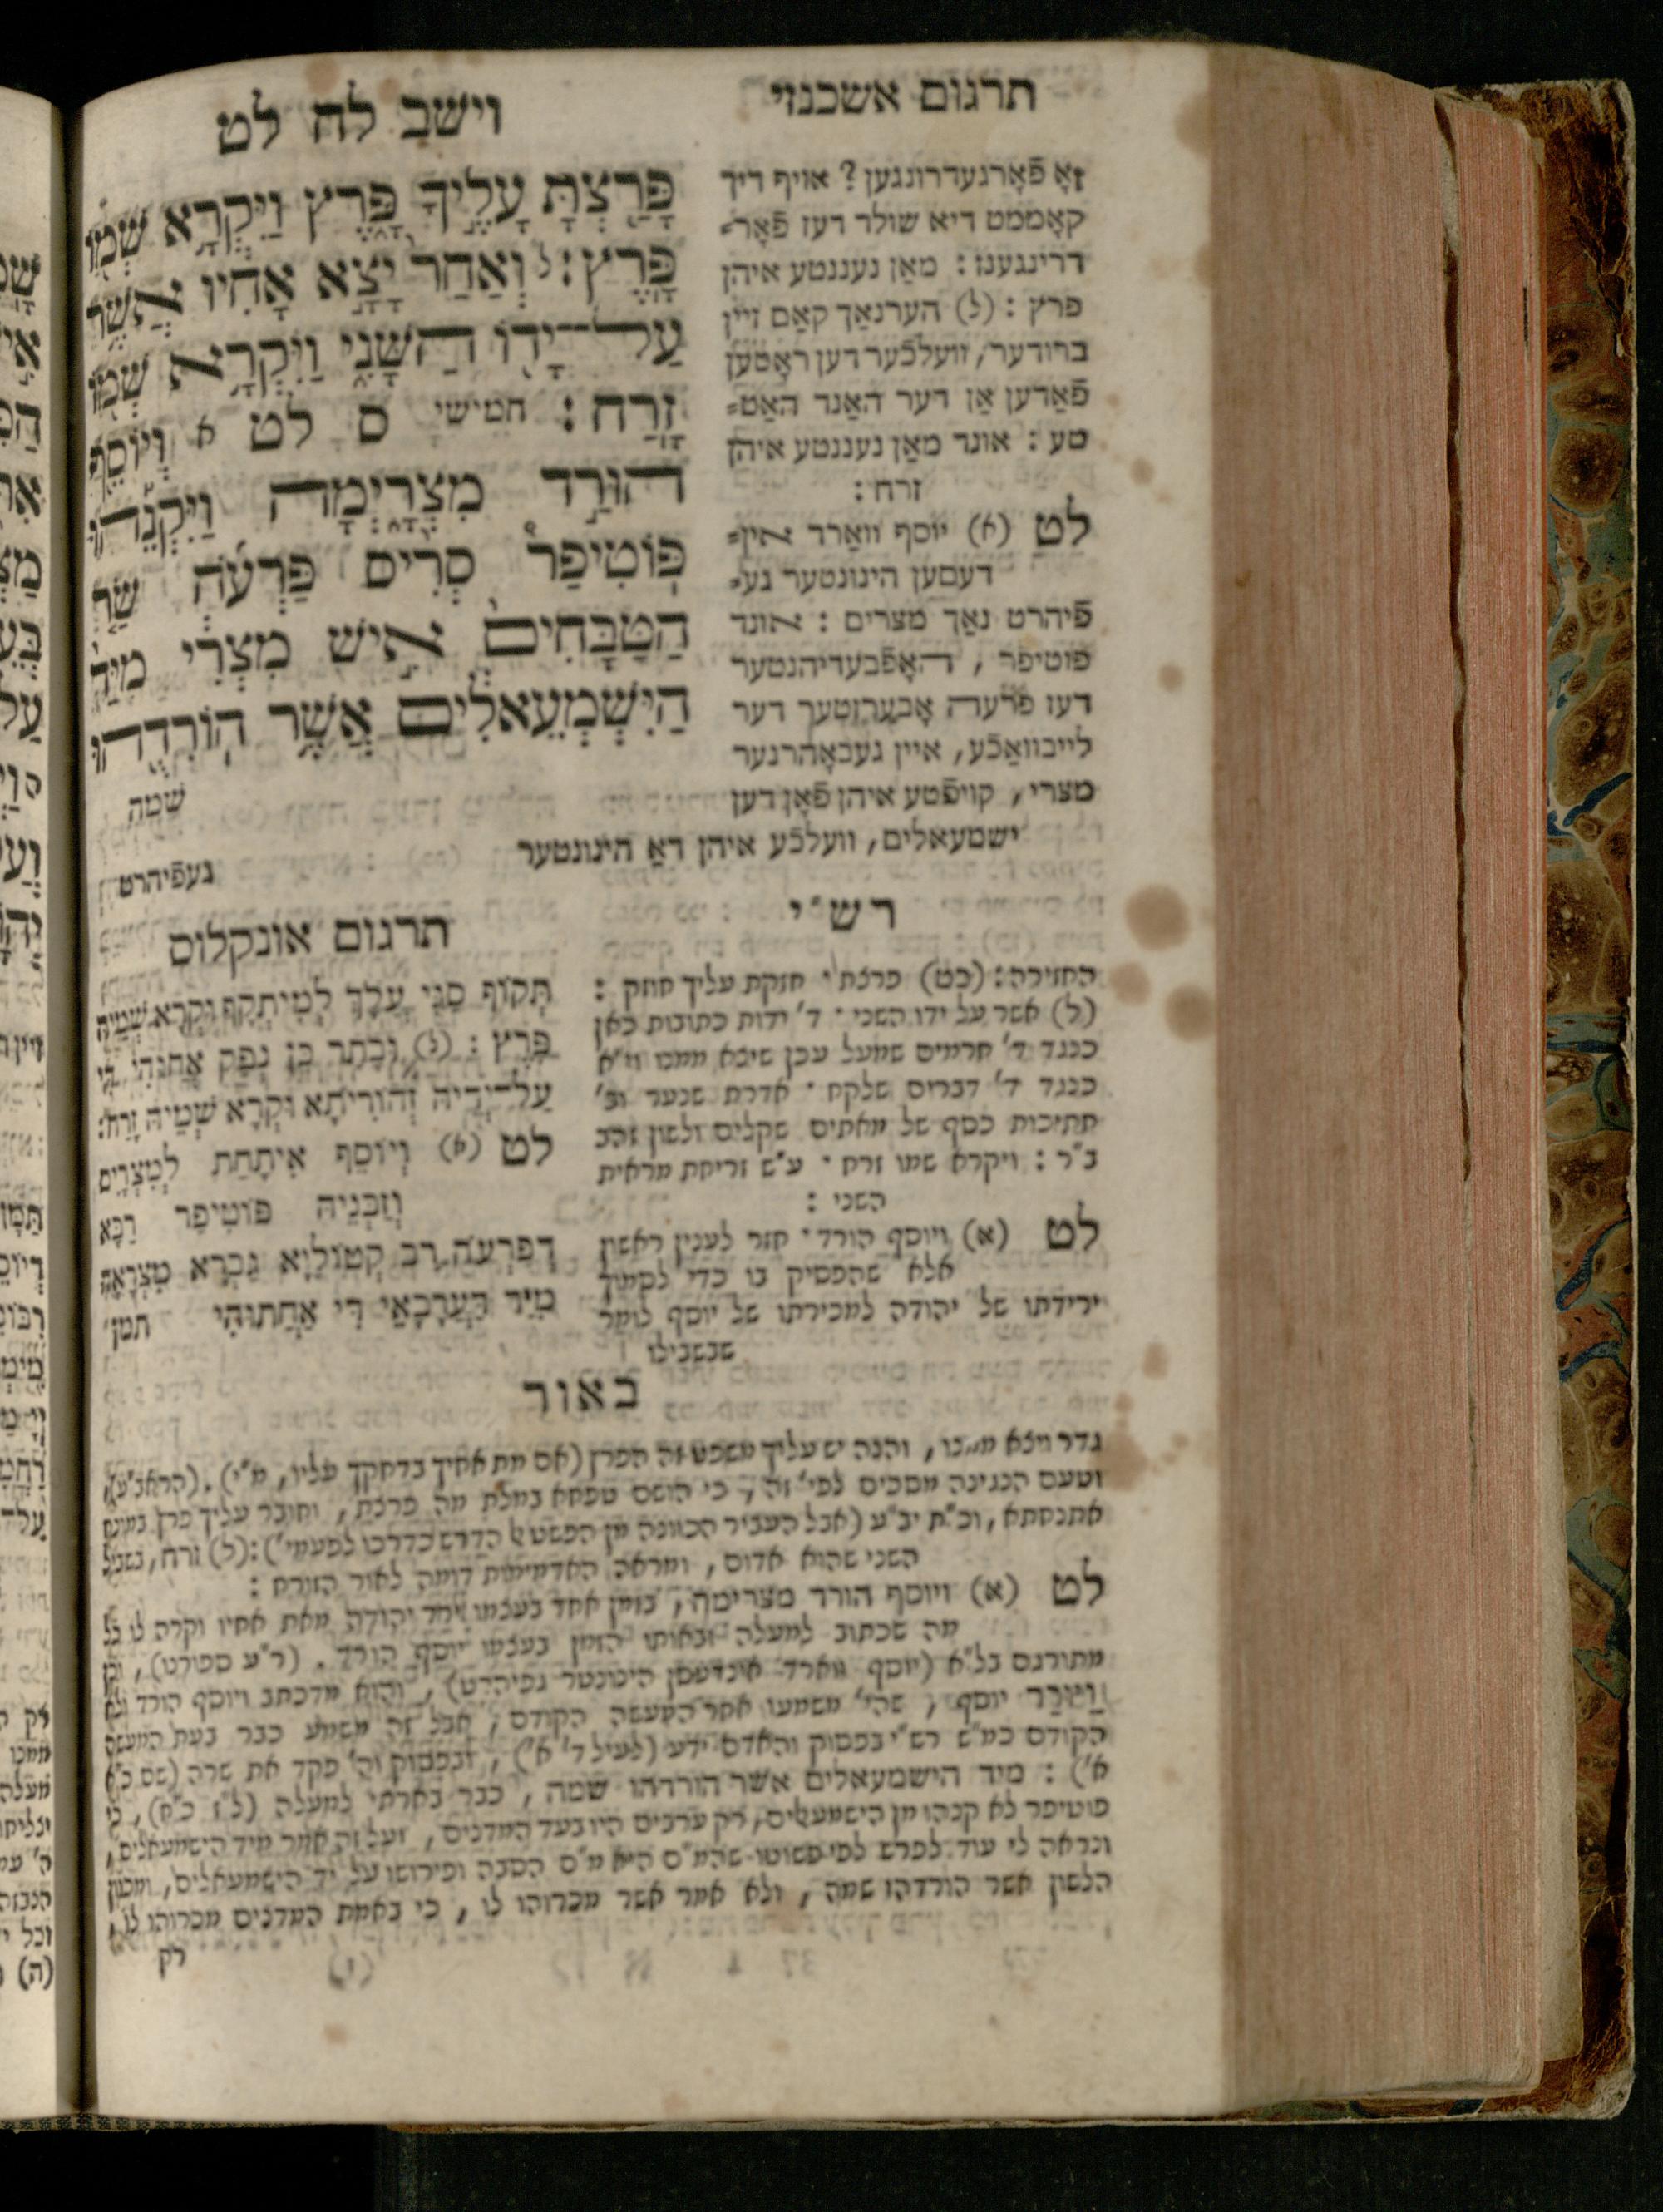 תרגום אשכנזי
וישב לח לט
זאָ פֿאָרגעדרונגען? אויף דיך
קאָממט דיא שולד דעז פֿאָר=
דרינגענז: מאַן נעננטע איהן
פרץ: (ל) הערנאַך קאַם זיין
ברודער, וועלכֿער דען ראָטען
פֿאַדען אַן דער האַנד האַט=
טע: אונד מאַן נעננטע איהן
זרח:
לט (א) יוסף וואַרד אינ=
דעסען הינונטער גע=
פֿיהרט נאַך מצרים: אונד
פוטיפר, האָפֿבעדיהנטער
דעז פרעה אָבערזטער דער
לייבוואַכֿע, איין געבאָהרנער
מצרי, קויפֿטע איהן פֿאָן דען
ישמעאלים, וועלכֿע איהן דאַ הינונטער
געפֿיהרט
פָּרַ֖צְתָּ עָלֶ֣יךָ פָּ֑רֶץ וַיִּקְרָ֥א שְׁמ֖וֹ
פָּֽרֶץ: ל וְאַחַר֙ יָצָ֣א אָחִ֔יו אֲשֶׁ֥ר
עַל־יָד֖וֹ הַשָּׁנִ֑י וַיִּקְרָ֥א שְׁמ֖וֹ
זָֽרַח: חמישי ס לט א וְיוֹסֵ֖ף
הוּרַ֣ד מִצְרָ֑יְמָה וַיִּקְנֵ֡הוּ
פּוֹטִיפַר֩ סְרִ֨יס פַּרְעֹ֜ה שַׂ֤ר
הַטַּבָּחִים֙ אִ֣ישׁ מִצְרִ֔י מִיַּד֙
הַיִּשְׁמְעֵאלִ֔ים אֲשֶׁ֥ר הֽוֹרִדֻ֖הוּ
שמה
רש"י
החזירה: (כט) פרצת · חזקת עליך חוזק:
(ל) אשר על ידו השני · ד' ידות כתובות כאן
כנגד ד' חרמים שמעל עכן שיצא ממנו וי"א
כנגד ד' דברים שלקח · אדרת שנער וב'
חתיכות כסף של מאתים שקלים ולשון זהב
ב"ר: ויקרא שמו זרח · ע"ש זריחת מראית
השני:
לט (א) ויוסף הורד · חזר לענין ראשון
אלא שהפסיק בו כדי לסמוך
ירידתו של יהודה למכירתו של יוסף לומר
שבשבילו
תרגום אונקלוס
תְּקוֹף סַגִּי עֲלָךְ לְמִיתְקַף וּקְרָא שְׁמֵיהּ
פָּרֶץ: (ל) וּבָתַר כֵּן נְפַק אֲחוּהִי דִּי
עַל־יְדֵיהּ זְהוֹרִיתָא וּקְרָא שְׁמֵיהּ זָרַח:
לט (א) וְיוֹסֵף אִיתָּחַת לְמִצְרָיִם
וְזַבְנֵיהּ פּוֹטִיפַר רַבָּא
דְפַרְעֹה רַב קְטוֹלַיָּא גַּבְרָא מִצְרָאָה
מִיַּד דַּעֲרָבָאֵי דִּי אַחֲתוּהִי
תמן
באור
גדר ויצא ממנו, והנה יש עליך משפט זה הפרץ (אם מת אחיך בדחקך עליו, מ"י). (הראב"ע),
וטעם הנגינה מסכים לפי' זה, כי הושם טפחא במלת מה פרצת, וחובר עליך פרץ בטעם
אתנחתא, וכ"ת יב"ע (אבל העביר הכוונה מן הפשט אל הדרש כדרכו לפעמי'): (ל) זרח, בשביל
השני שהוא אדום, ומראה האדמימות דומה לאור הזורח:
לט (א) ויוסף הורד מצרימה, בזמן אחד בעצמו ירד יהודה מאת אחיו וקרה לו כל
מה שכתוב למעלה ובאותו הזמן בעצמו יוסף הורד. (ר"ע ספורנו), וכן
מתורגם בל"א (יוסף ווארד אינדעסן הינונטר גפיהרט), והוא מדכתב ויוסף הורד ולא
וַיּוּרַד יוסף, שהי' משמעו אחר המעשה הקודם, אבל זה משמע כבר בעת המעשה
הקודם כמ"ש רש"י בפסוק והאדם ידע (לעיל ד' א'), ובפסוק וה' פקד את שרה (שם כ"א
א'): מיד הישמעאלים אשר הורדהו שמה, כבר בארתי למעלה (ל"ז כ"ח), כי
פוטיפר לא קנהו מן הישמעאלים, רק ערבים היו בעד המדנים, ועל זה אמר מיד הישמעאלים,
ונראה לי עוד לפרש לפי פשוטו שהמ"ם היא מ"ם הסבה ופירושו על יד הישמעאלים, ומכוון
הלשון אשר הורדהו שמה, ולא אמר אשר מכרוהו לו, כי באמת המדנים מכרוהו לו,
רק